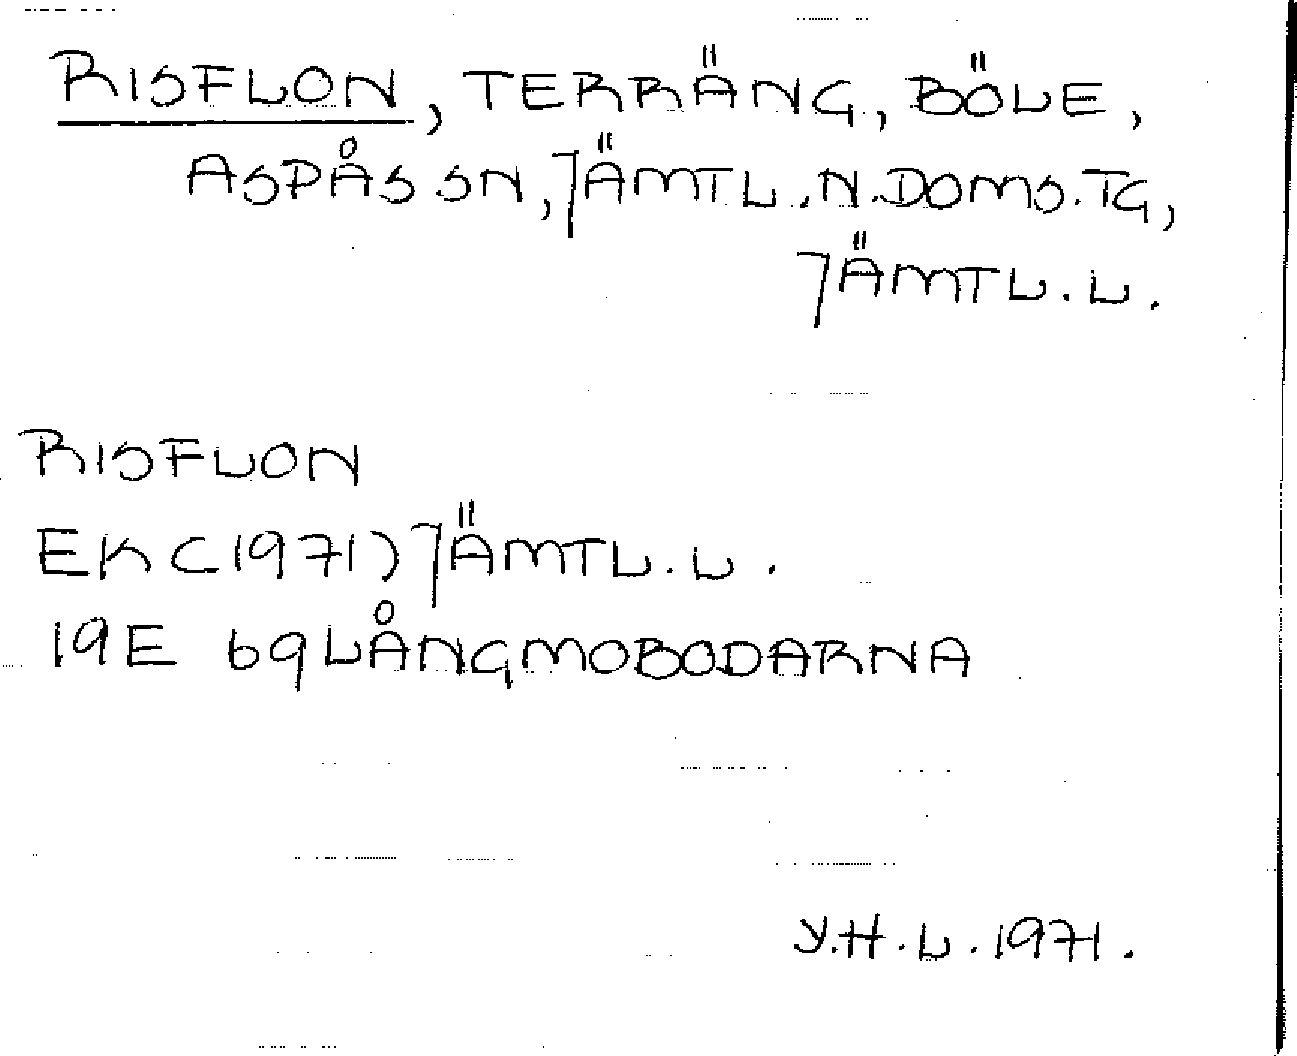 RISFLON, TERRÄNG, BÖLE,
ASPÅS SN, JÄMTL. N. DOMS. TG,
JÄMTL. L.
RISFLON
EK (1971) JÄMTL. L.
19E 69 LÅNGMOBODARNA
Y.H.L. 1971.